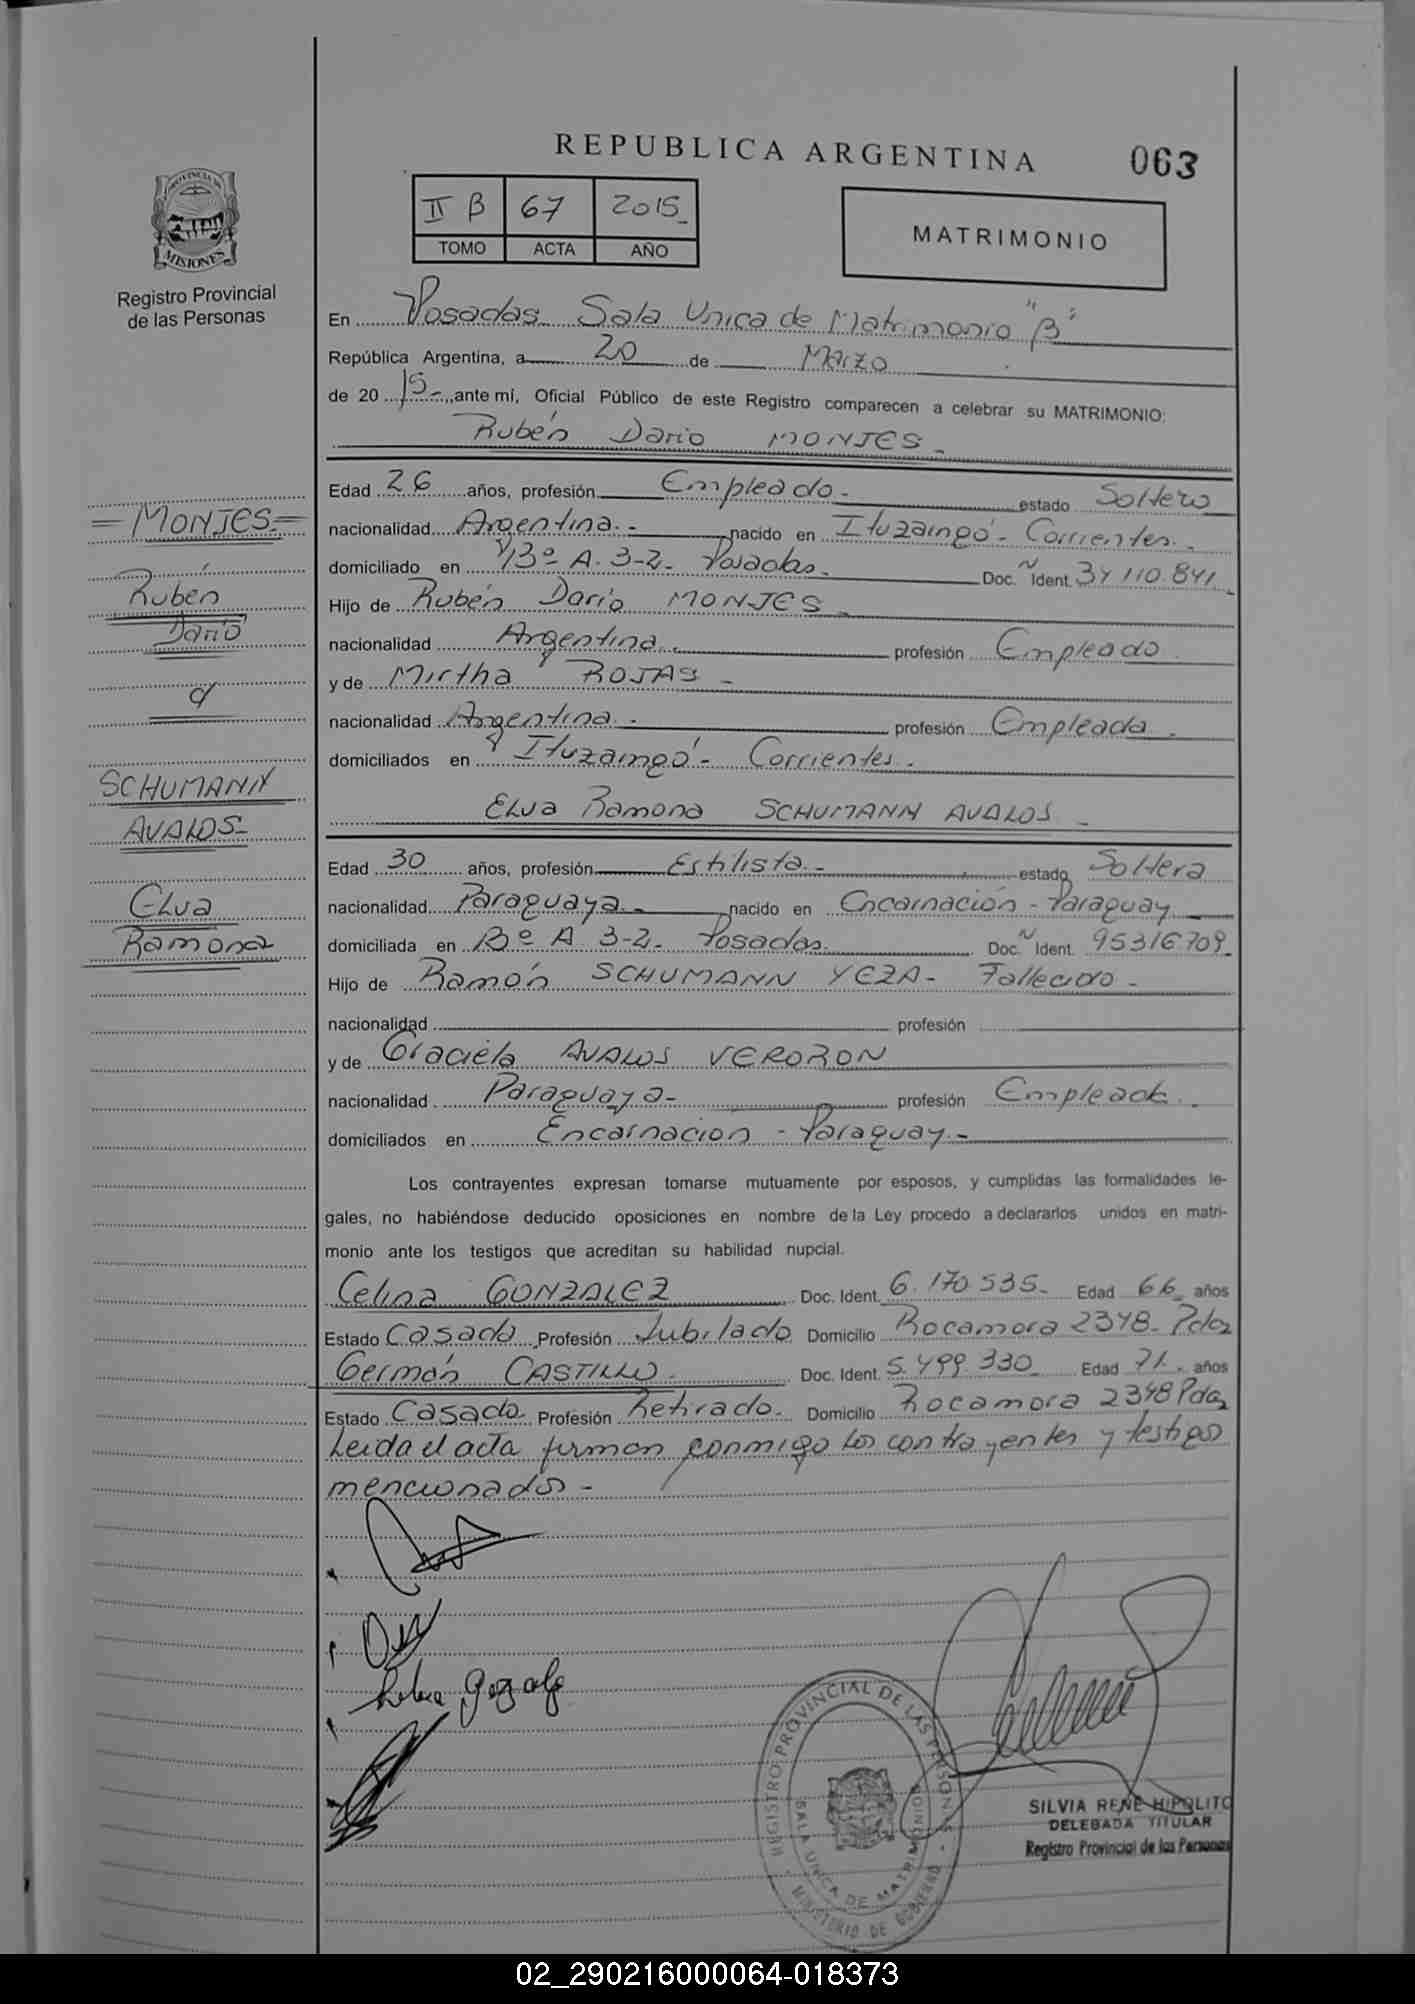 REPUBLICA ARGENTINA
063
II B 67 2015
TOMO ACTA AÑO
MATRIMONIO
PROVINCIA DE
MISIONES
Registro Provincial
de las Personas
En Posadas Sala Unica de Matrimonio "B"
República Argentina, a 20 de Marzo
de 20 15 ,ante mí, Oficial Público de este Registro comparecen a celebrar su MATRIMONIO:
Rubén Dario MONJES -
Edad 26 años, profesión Empleado - estado Soltero
nacionalidad Argentina - nacido en Ituzaingó - Corrientes -
domiciliado en Bº A. 3-2 - Posadas. Doc. N Ident. 34 110.841
Hijo de Rubén Dario MONJES -
nacionalidad Argentina - profesión Empleado
y de Mirtha ROJAS -
nacionalidad Argentina - profesión Empleada -
domiciliados en Ituzaingó - Corrientes -
Elva Ramona SCHUMANN AVALOS -
Edad 30 años, profesión Estilista - estado Soltera
nacionalidad Paraguaya - nacido en Encarnación - Paraguay -
domiciliada en Bº A 3-2 - Posadas Doc. N Ident. 95316709
Hijo de Ramón SCHUMANN YEZA - Fallecido -
nacionalidad profesión
y de Graciela AVALOS VERORON
nacionalidad Paraguaya - profesión Empleada
domiciliados en Encarnacion - Paraguay -
Los contrayentes expresan tomarse mutuamente por esposos, y cumplidas las formalidades le-
gales, no habiéndose deducido oposiciones en nombre de la Ley procedo a declararlos unidos en matri-
monio ante los testigos que acreditan su habilidad nupcial.
Celina GONZALEZ Doc. Ident. 6.170.535 - Edad 66 años
Estado Casado Profesión Jubilado Domicilio Rocamora 2348 - Pdas
Germán CASTILLO Doc. Ident. 5.499.330 Edad 71 años
Estado Casado Profesión Retirado. Domicilio Rocamora 2348 Pdas
Leida el acta firman conmigo los contrayentes y testigos
mencionados -
= MONJES =
Rubén
Darió
SCHUMANN
AVALOS
Elva
Ramona
REGISTRO PROVINCIAL DE LAS PERSONAS
SALA UNICA DE MATRIMONIOS
MINISTERIO DE GOBIERNO
SILVIA RENE HIPOLITO
DELEGADA TITULAR
Registro Provincial de las Personas
02_290216000064-018373